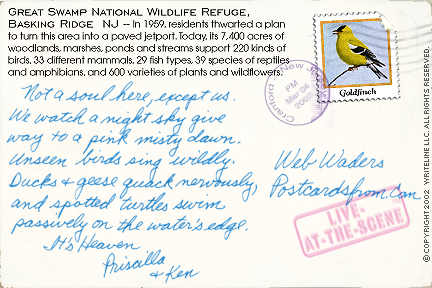 GREAT SWAMP NATIONAL WILDLIFE REFUGE,
BASKING RIDGE NJ -- In 1959, residents thwarted a plan
to turn this area into a paved jetport. Today, its 7,400 acres of
woodlands, marshes, ponds and streams support 220 kinds of
birds, 33 different mammals, 29 fish types, 39 species of reptiles
and amphibians, and 600 varieties of plants and wildflowers.
Not a soul here, except us.
We watch a night sky give
way to a pink misty dawn.
Unseen birds sing wildly.
Ducks & geese quack nervously,
and spotted turtles swim
passively on the water's edge.
It's Heaven
Priscilla
& Ken
Goldfinch
Cranford New
PM
Web Waders
Postcardsfrom.com
LIVE-
AT-THE-SCENE
© COPYRIGHT 2002 WRITELINE LLC. ALL RIGHTS RESERVED.